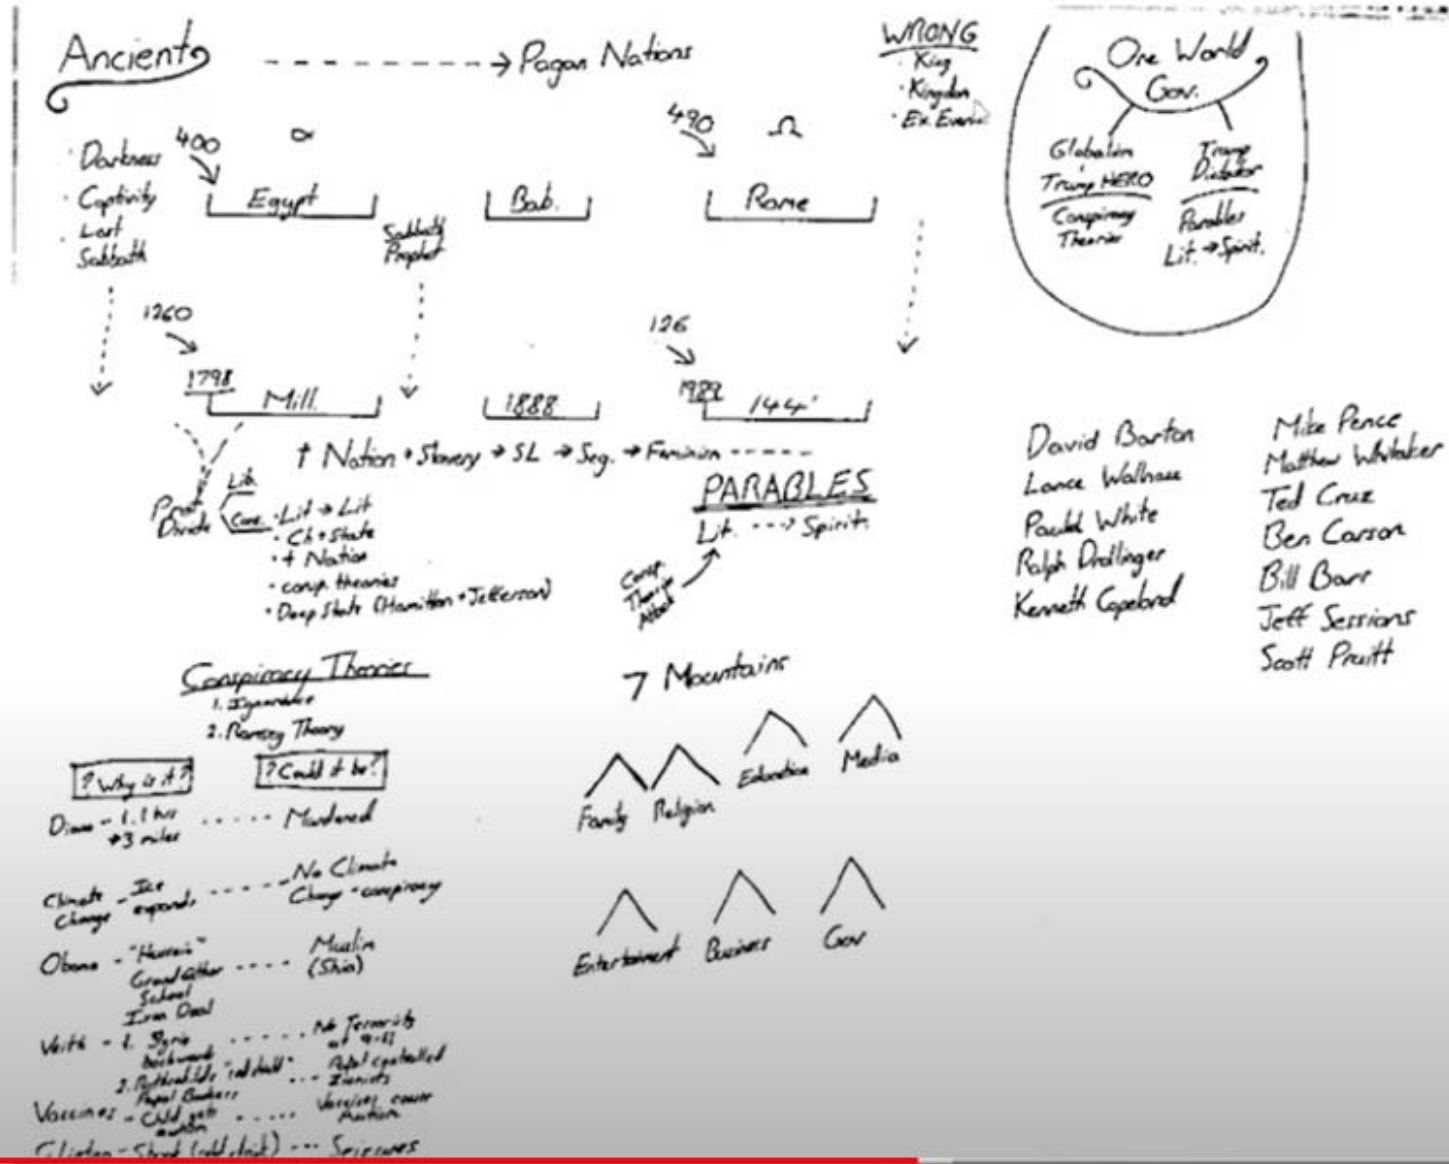 Ancient
Pagan Nations
WRONG
· King
· Kingdom
· Ex.
One World
Gov.
Globalism
Trump HERO
Conspiracy
Theories
Trump
Dictator
Parables
Lit. → Spirit.
· Darkness
· Captivity
· Lost
Sabbath
400
α
490
Ω
Egypt
Bab.
Rome
Sabbath
Prophet
1260
126
1798
Mill.
1888
1989
144
† Nation → Slavery → SL → Seg. → Feminism
Prot
Divide
Lib.
Cons.
· Lit → Lit
· Ch + State
· † Nation
· consp. theories
· Deep State (Hamilton + Jefferson)
PARABLES
Lit. ---> Spirit.
Consp.
Theories
Attack
David Barton
Lance Wallnau
Paula White
Ralph Drollinger
Kenneth Copeland
Mike Pence
Matthew Whitaker
Ted Cruz
Ben Carson
Bill Barr
Jeff Sessions
Scott Pruitt
Conspiracy Theories
1. Ignorance
2. Ramsey Theory
? Why is it?
? Could it be?
Diana - 1.1 hrs
3 miles
Murdered
Climate
Change
- Ice
expands
No Climate
Change - conspiracy
Obama - "Hussein"
Grandfather
School
Iran Deal
Muslim
(Shia)
Veith - 1.
backwards
2. Rothschilds "red shield"
Papal Bankers
No Terrorists
at 9-11
Papal controlled
Zionists
Vaccines - Child gets
autism
Vaccines cause
Autism
Clinton - (cold drink) --- Seizures
7 Mountains
Family
Religion
Education
Media
Entertainment
Business
Gov